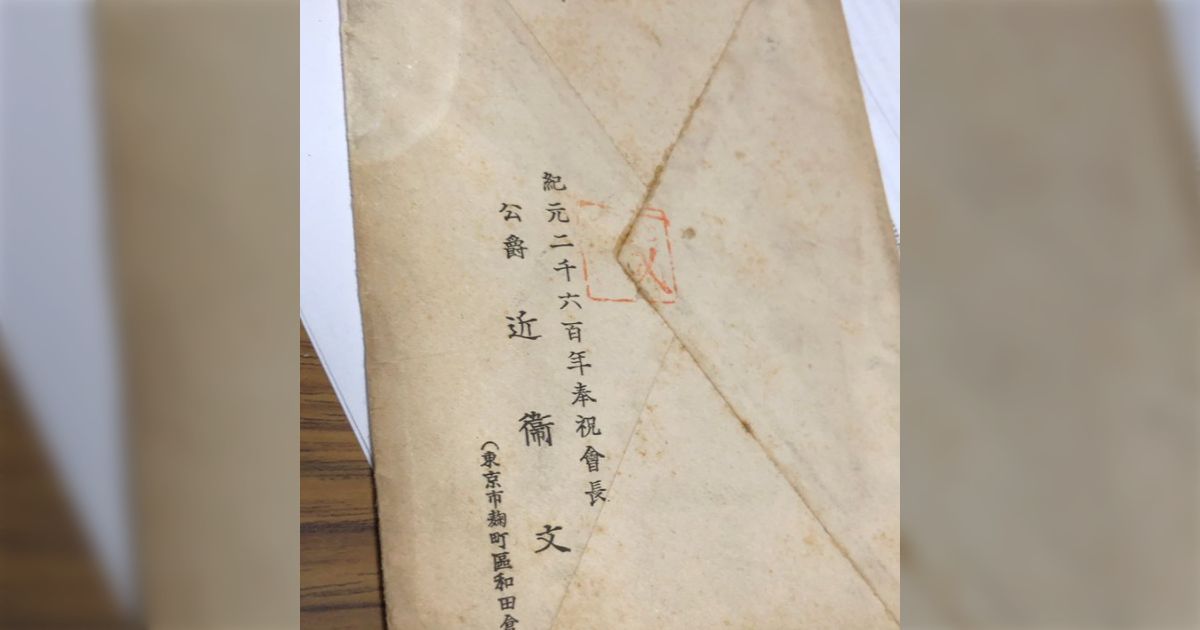 紀元二千六百年奉祝會長
公爵 近衞文
(東京市麹町區和田倉